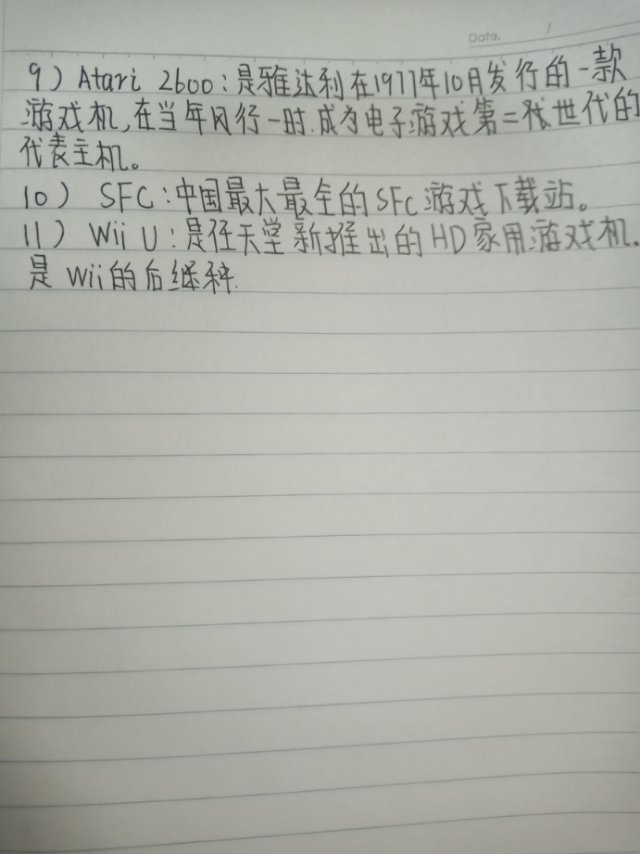 Data. /
9) Atari 2600:是雅达利在1977年10月发行的一款
游戏机,在当年风行一时.成为电子游戏第二世代的
代表主机。
10) SFC:中国最大最全的SFC游戏下载站。
11) Wii U:是任天堂新推出的HD家用游戏机.
是Wii的后继